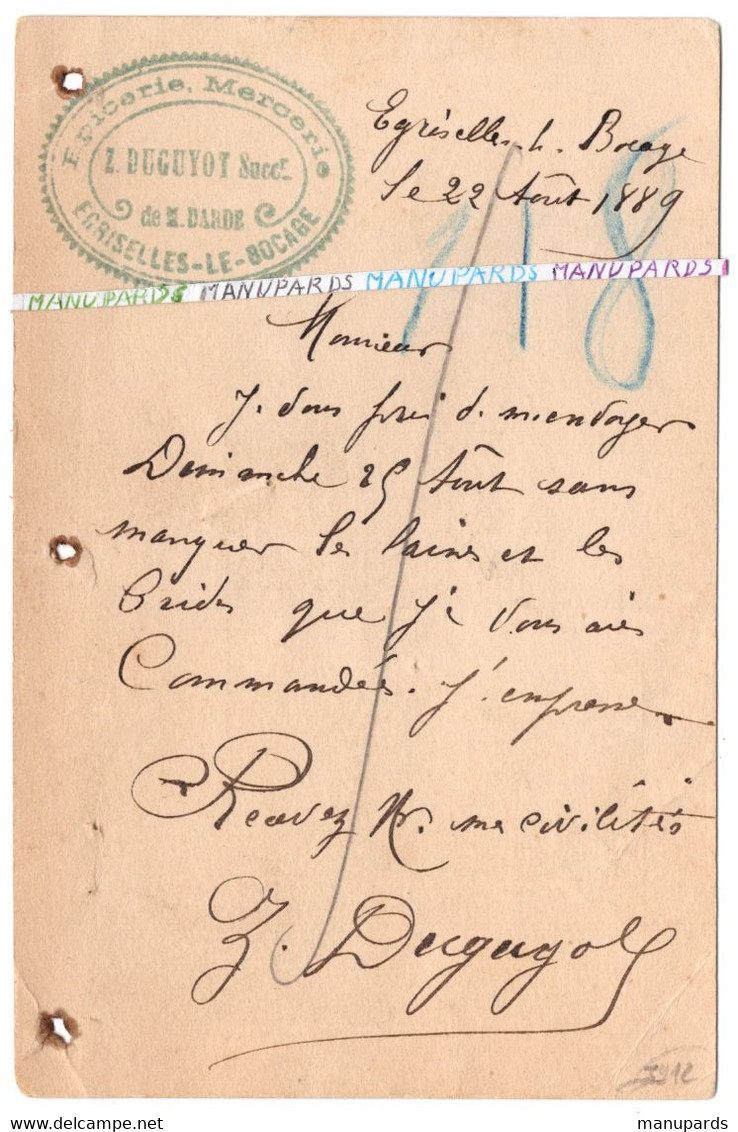 Epicerie, Mercerie
Z. DUGUYOT Succr.
de M. DARDE
EGRISELLES-LE-BOCAGE
Egriselles-le-Bocage
le 22 Août 1889
118
MANUPARDS MANUPARDS MANUPARDS MANUPARDS
Monsieur
Je vous prie de m'envoyer
Dimanche 25 Août sans
manquer les laines et les
brides que je vous ais
Commandés. J'en
Recevez Mr. mes civilités
Z. Duguyot
manupards